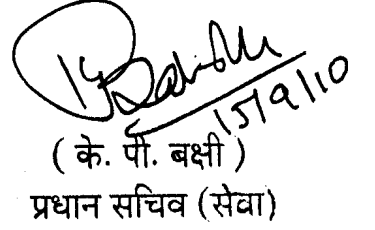 15/9/10
( के. पी. बक्षी )
प्रधान सचिव (सेवा)